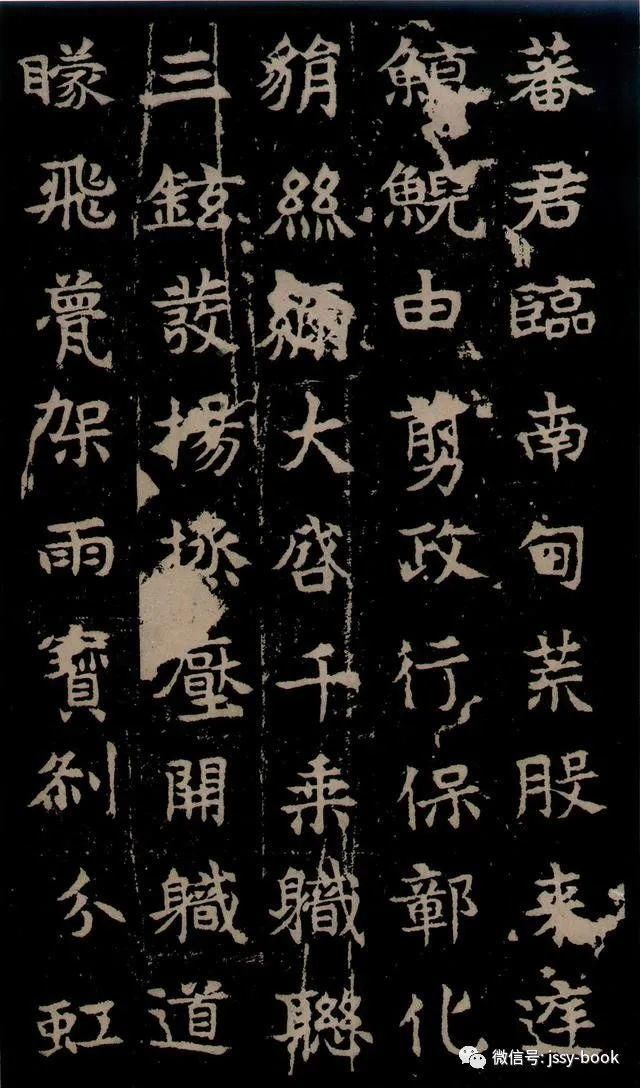 蕃君臨南甸荒服来逹
鯨鯢由剪政行保鄣化
絲綸大啓千乘職聯
三鉉裁揚拯壓開職道
矇飛甍架雨寶刹分虹
微信号: jssy-book